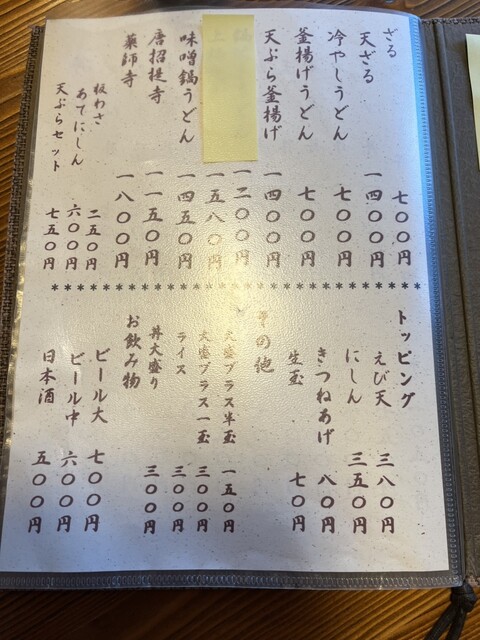 ざる 七〇〇円
天ざる 一四〇〇円
冷やしうどん 七〇〇円
釜揚げうどん 七〇〇円
天ぷら釜揚げ 一四〇〇円
一二〇〇円
一五八〇円
味噌鍋うどん 一四五〇円
唐招提寺 一一五〇円
薬師寺 一八〇〇円
板わさ 二五〇円
あてにしん 六〇〇円
天ぷらセット 七五〇円
********************************************
トッピング
えび天 三八〇円
にしん 三五〇円
きつねあげ 八〇円
生玉 七〇円
その他
大盛プラス半玉 一五〇円
大盛プラス一玉 三〇〇円
ライス 三〇〇円
丼大盛り 三〇〇円
お飲み物
ビール大 七〇〇円
ビール中 六〇〇円
日本酒 五〇〇円